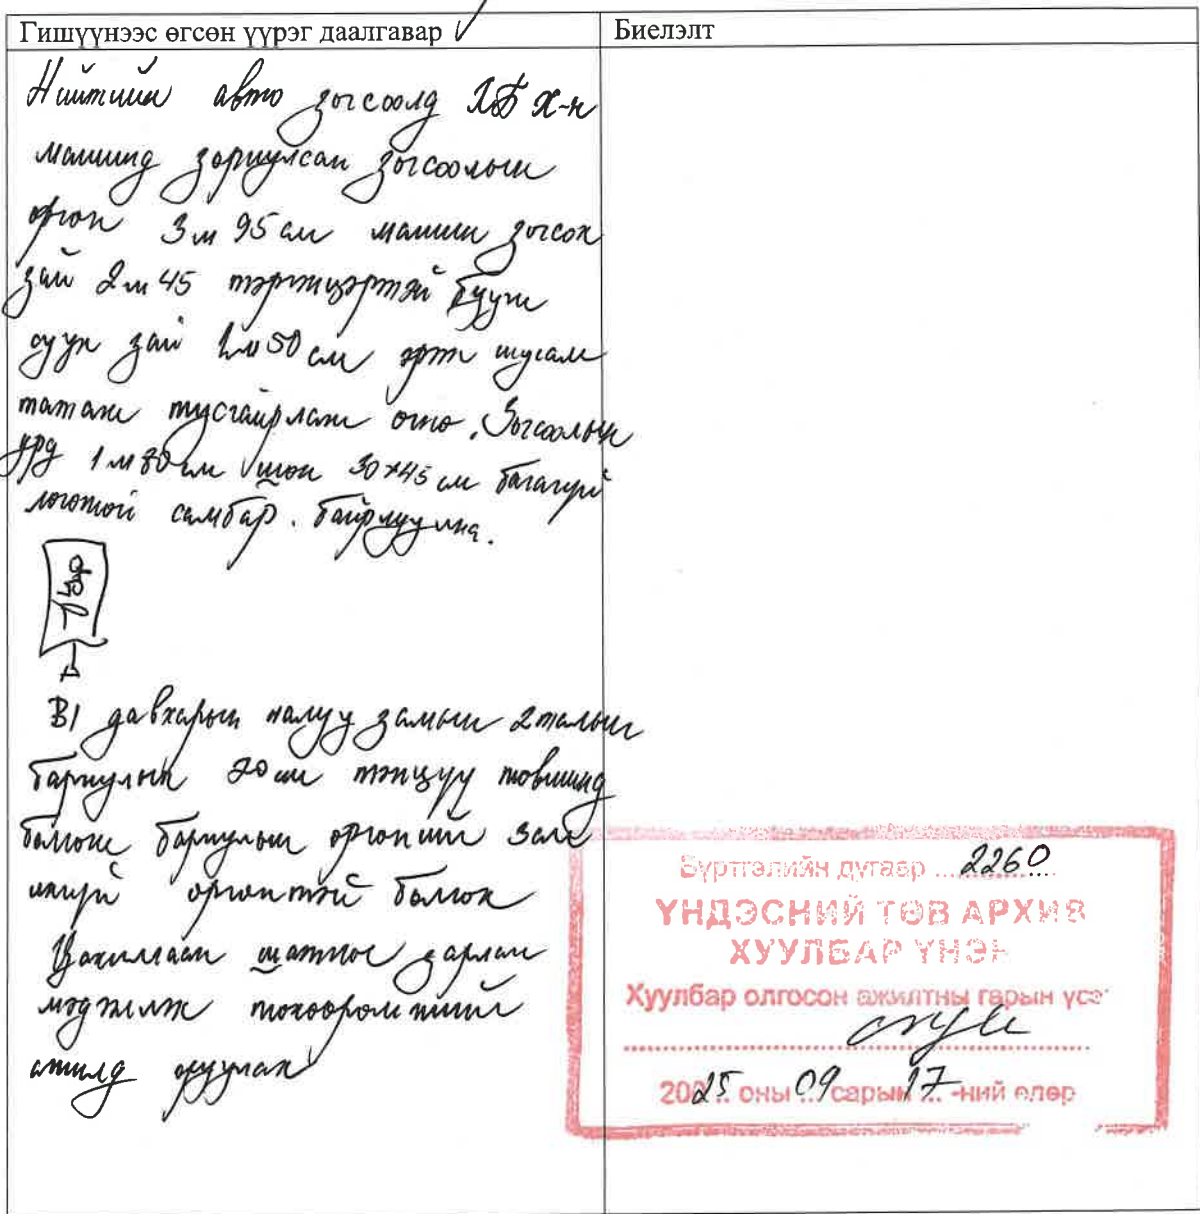 Гишүүнээс өгсөн үүрэг даалгавар
Биелэлт
Нийтийн авто зогсоолд ХБХ-н
машинд зориулсан зогсоолын
өргөн 3м 95 см машин зогсох
зай 2м 45 тэргэнцэртэй бууж
суух зай 1м 50 см зурж шугам
татаж тусгаарлаж өгнө. Зогсоолын
урд 1м 80 см шон 30×45 см багагүй
логотой самбар. байрлуулна.
В1 давхарын налуу замын 2 талын
бариулын 20 см тэнцүү төвшинд
болгож бариулын өргөнийг
өргөнтэй болгох
Цахилгаан шатны
мэдээлэх төхөөрөмжийг
ажилд оруулах
Бүртгэлийн дугаар ... 2260 ...
ҮНДЭСНИЙ ТӨВ АРХИВ
ХУУЛБАР ҮНЭН
Хуулбар олгосон ажилтны гарын үсэг
2025 оны 09 сарын 17 -ний өдөр